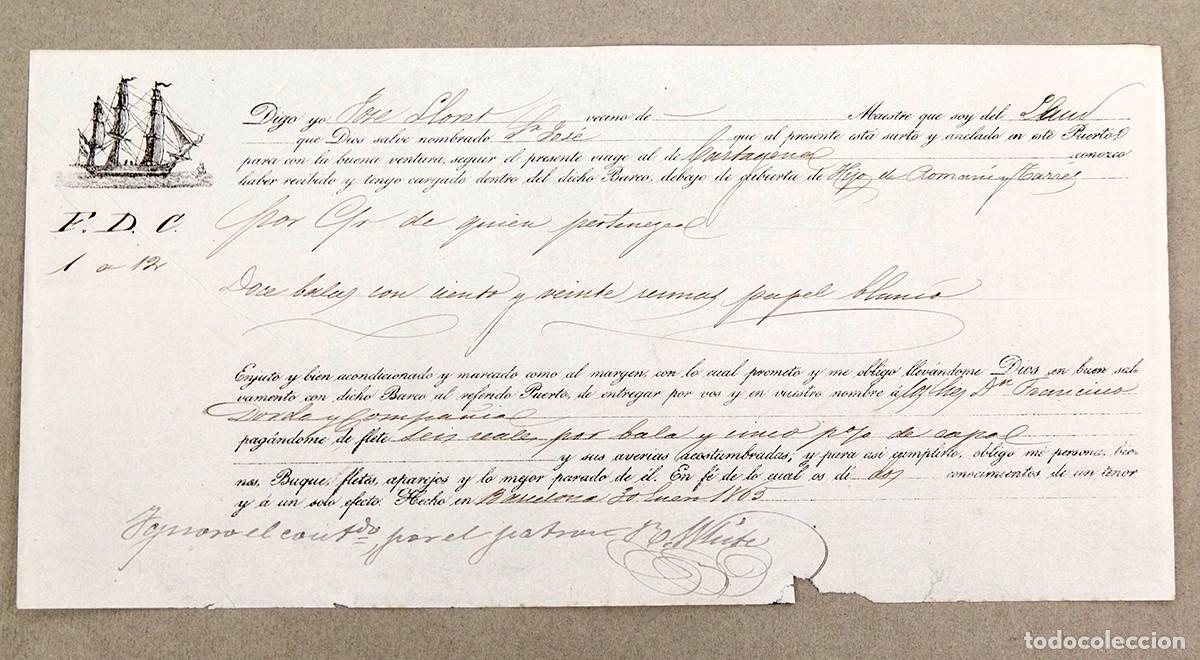 Digo yo Jose Lloret vecino de — Maestre que soy del Laud
que Dios salve nombrado Sn José que al presente está surto y anclado en este Puerto,
para con la buena ventura, seguir el presente viage al de Cartagena conozco
haber recibido y tengo cargado dentro del dicho Barco, debajo de cubierta de Hijo de Romaní y Tarres
F. D. C. por Cta de quien pertenezca
1 a 12
Doce balas con ciento y veinte resmas papel blanco
Enjuto y bien acondicionado y marcado como al margen, con lo cual prometo y me obligo llevándome Dios en buen sal-
vamento con dicho Barco al referido Puerto, de entregar por vos y en vuestro nombre á los Sres Dn Francisco
Dorda y Compañia
pagándome de flete seis reales por bala y cinco p% de capa
y sus averias acostumbradas; y para asi cumplirlo, obligo mi persona, bie-
nes, Buque, fletes, aparejos y lo mejor parado de él. En fé de lo cual os dí dos conocimientos de un tenor
y á un solo efecto. Hecho en Barcelona 20 1865
Ignoro el contdo por el patron
todocoleccion